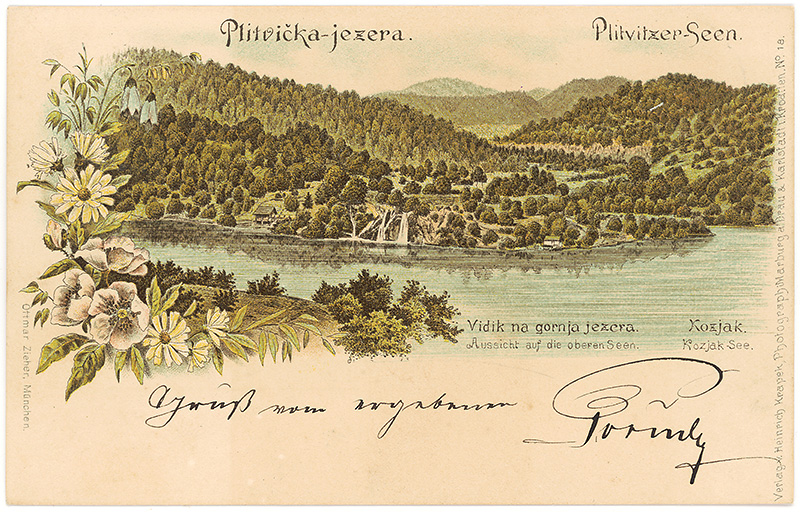 Plitvička-jezera.
Plitvitzer-Seen.
Vidik na gornja jezera.
Kozjak.
Aussicht auf die oberen Seen.
Kozjak-See.
Gruß vom ergebenen
Ottmar Zieher, München.
Verlag v. Heinrich Krapek, Photograph, Marburg a/Drau & Karlstadt in Kroatien. No 18.